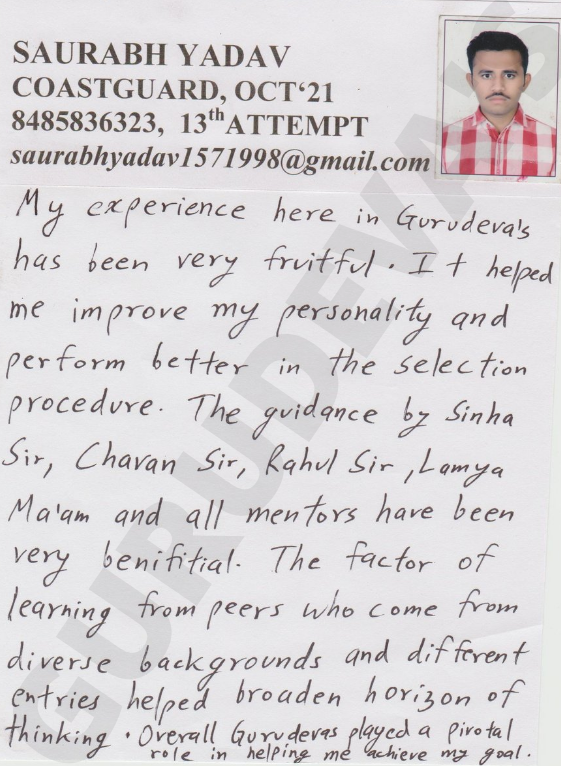 SAURABH YADAV
COASTGUARD, OCT‘21
8485836323, 13th ATTEMPT
saurabhyadav1571998@gmail.com
My experience here in Gurudeva's
has been very fruitful. It helped
me improve my personality and
perform better in the selection
procedure. The guidance by Sinha
Sir, Chavan Sir, Rahul Sir, Lamya
Ma'am and all mentors have been
very benifitial. The factor of
learning from peers who come from
diverse backgrounds and different
entries helped broaden horizon of
thinking. Overall Gurudevas played a pivotal
role in helping me achieve my goal.
GURUDEVAS